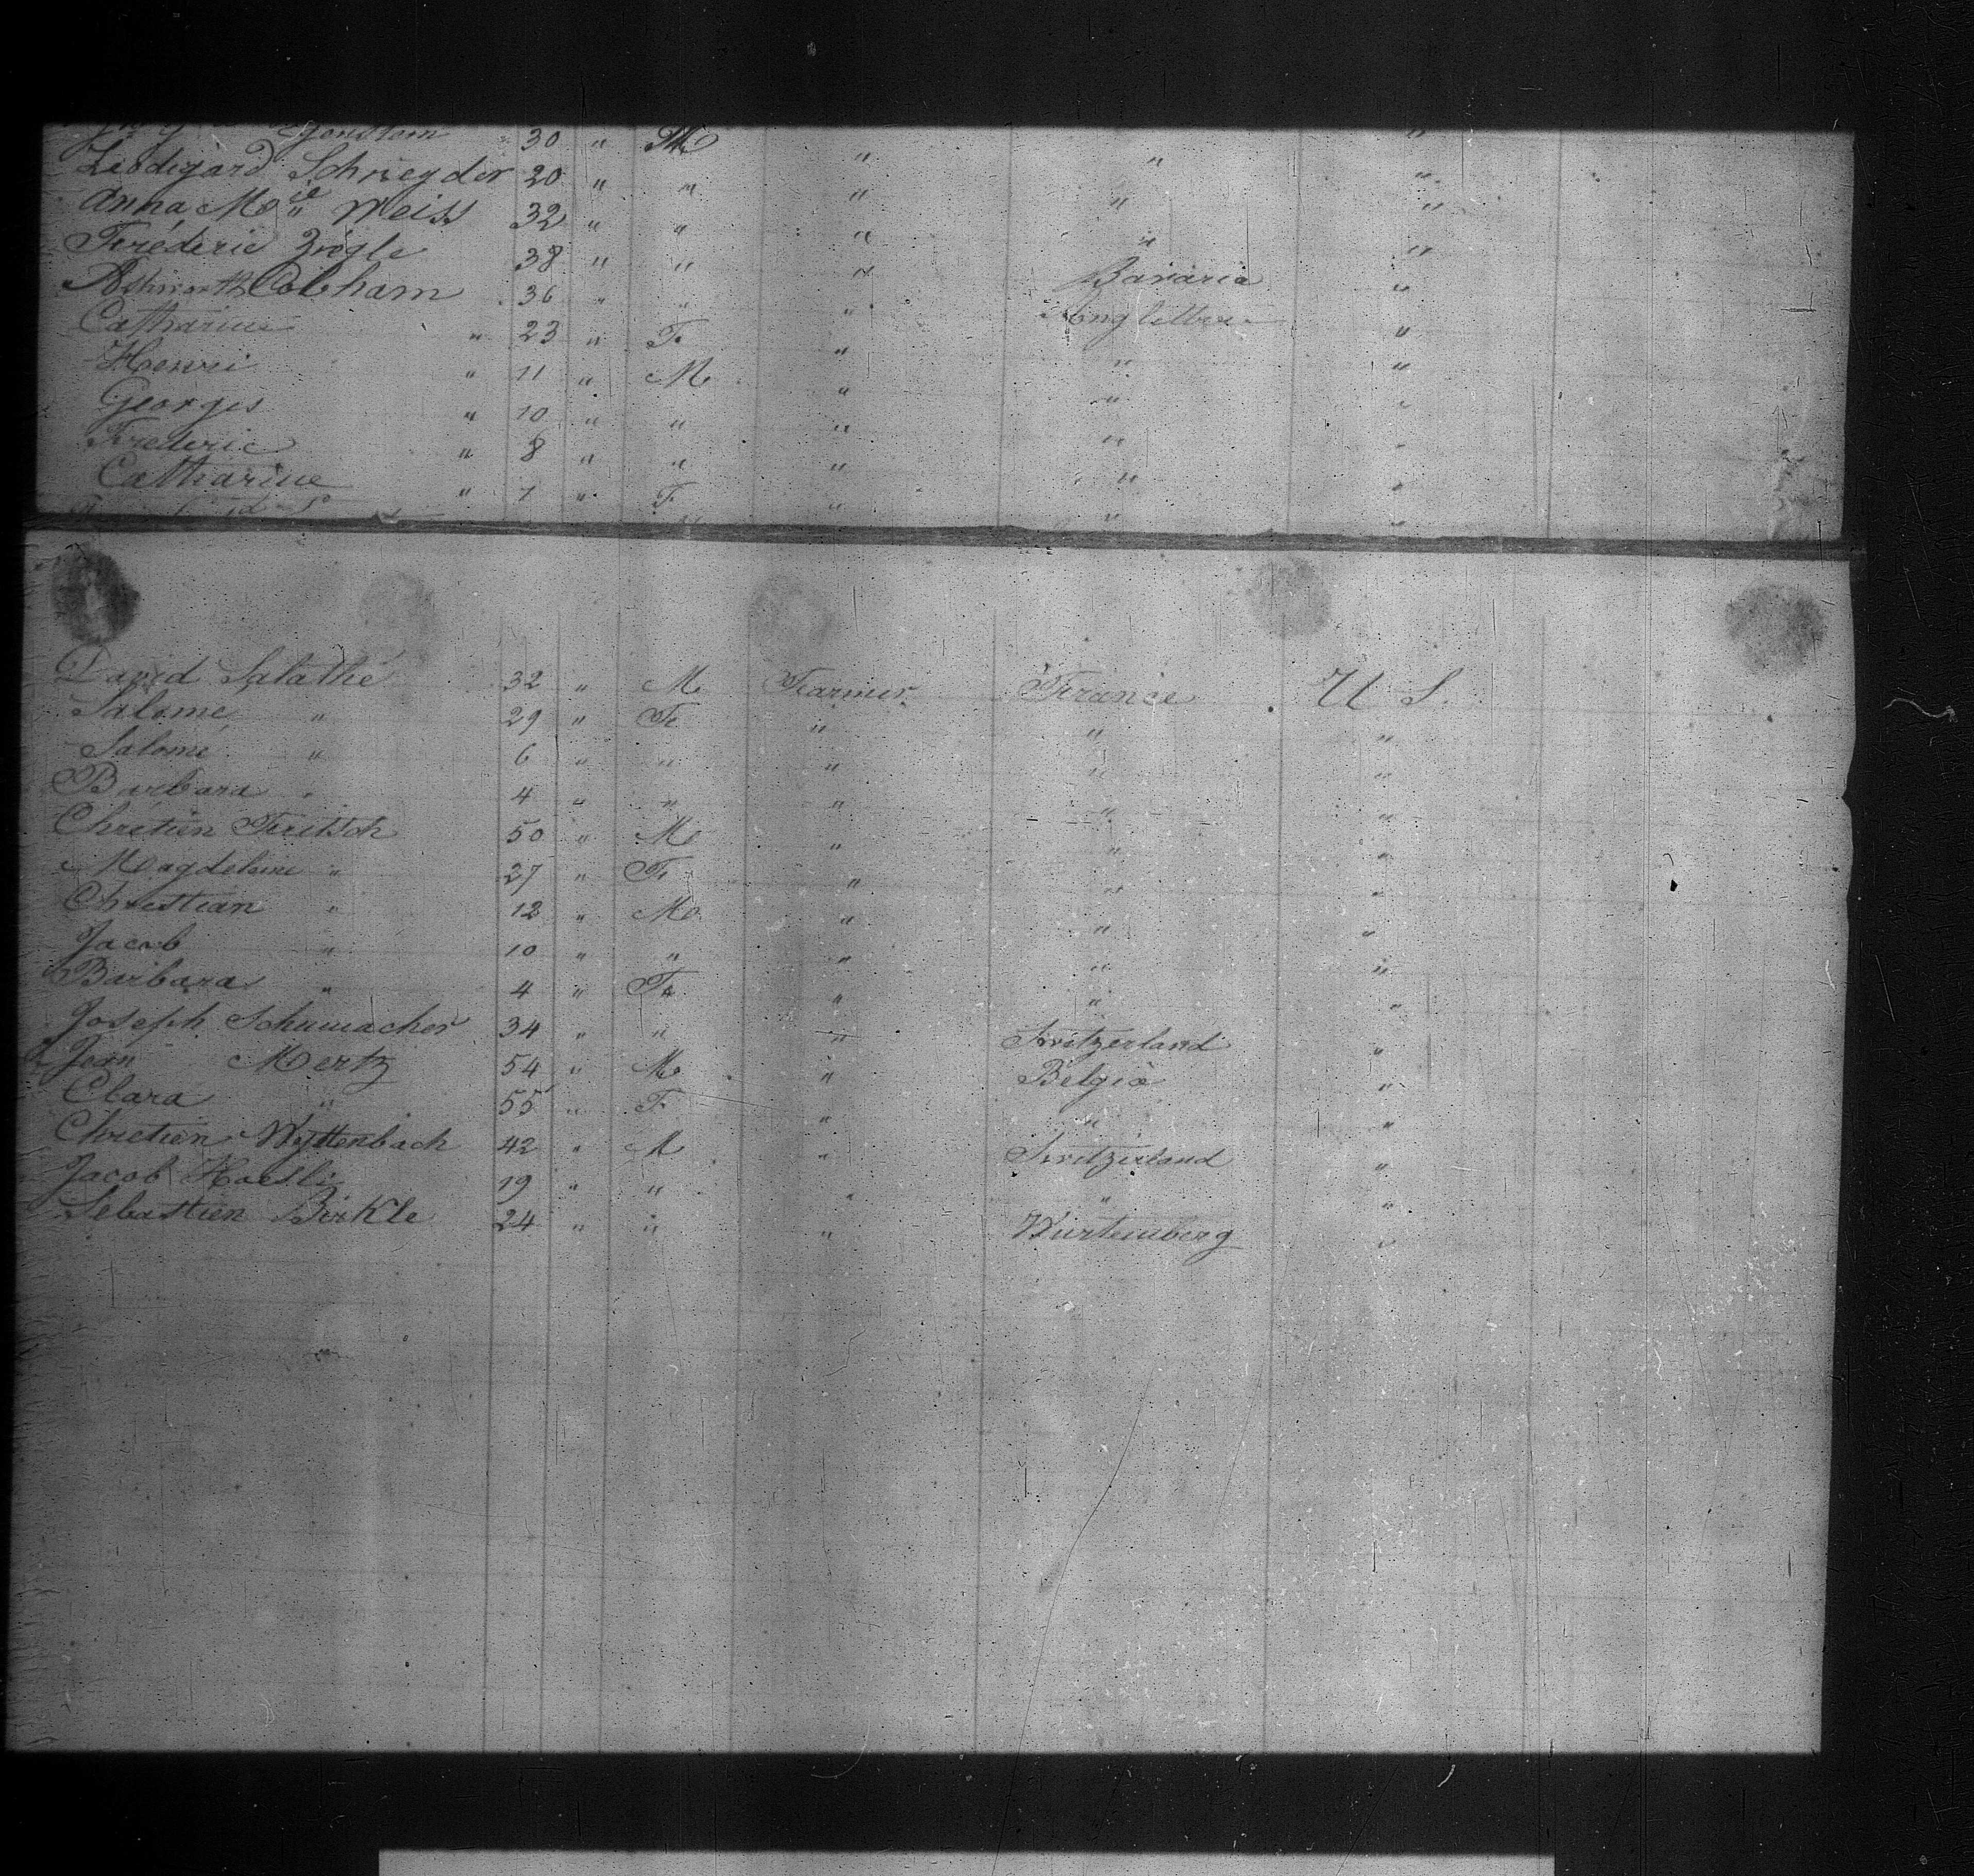 30 " M " " "
Leodegard Schneyder 20 " " " " "
Anna Mie Weiss 32 " " " " "
Fréderic Zwigle 38 " " " Bavaria "
Ashworth Cobham 36 " " " Angleterre "
Catharine " 23 " F " " "
Henri " 11 " M " " "
Georges " 10 " " " " "
Frederic " 8 " " " " "
Catharine " 7 " F " " "
David Salathé 32 " M Farmer France U S.
Salomé " 29 " F " " "
Salomé " 6 " " " " "
Barbara " 4 " " " " "
Chrétien Fritsch 50 " M " " "
Magdeleine " 27 " F " " "
Christian " 12 " M " " "
Jacob " 10 " " " " "
Barbara " 4 " F " " "
Joseph Schumacher 34 " " " Switzerland "
Jean Mertz 54 " M " Belgia "
Clara " 55 " F " " "
Chretien Wyttenbach 42 " M " Switzerland "
Jacob Hoesli 19 " " " " "
Sebastien Birkle 24 " " " Wurtemberg "